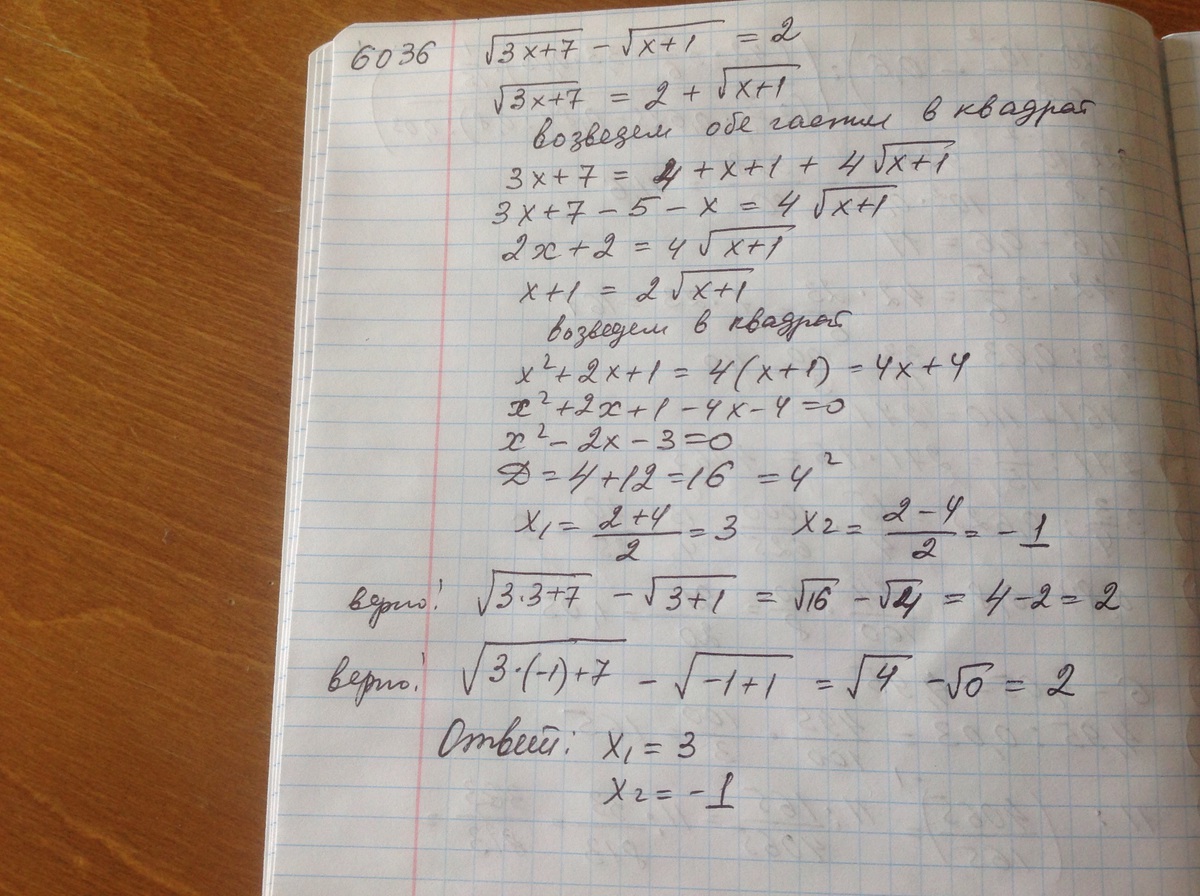 6036 √(3x+7) - √(x+1) = 2
√(3x+7) = 2 + √(x+1)
возведем обе части в квадрат
3x+7 = 4+x+1 + 4√(x+1)
3x+7-5-x = 4√(x+1)
2x+2 = 4√(x+1)
x+1 = 2√(x+1)
возведем в квадрат
x²+2x+1 = 4(x+1) = 4x+4
x²+2x+1-4x-4=0
x²-2x-3=0
D=4+12=16 =4²
x₁ = (2+4)/2 = 3 x₂ = (2-4)/2 = -1
верно! √(3·3+7) - √(3+1) = √16 - √4 = 4-2=2
верно! √(3·(-1)+7) - √(-1+1) = √4 - √0 = 2
Ответ: x₁ = 3
x₂ = -1